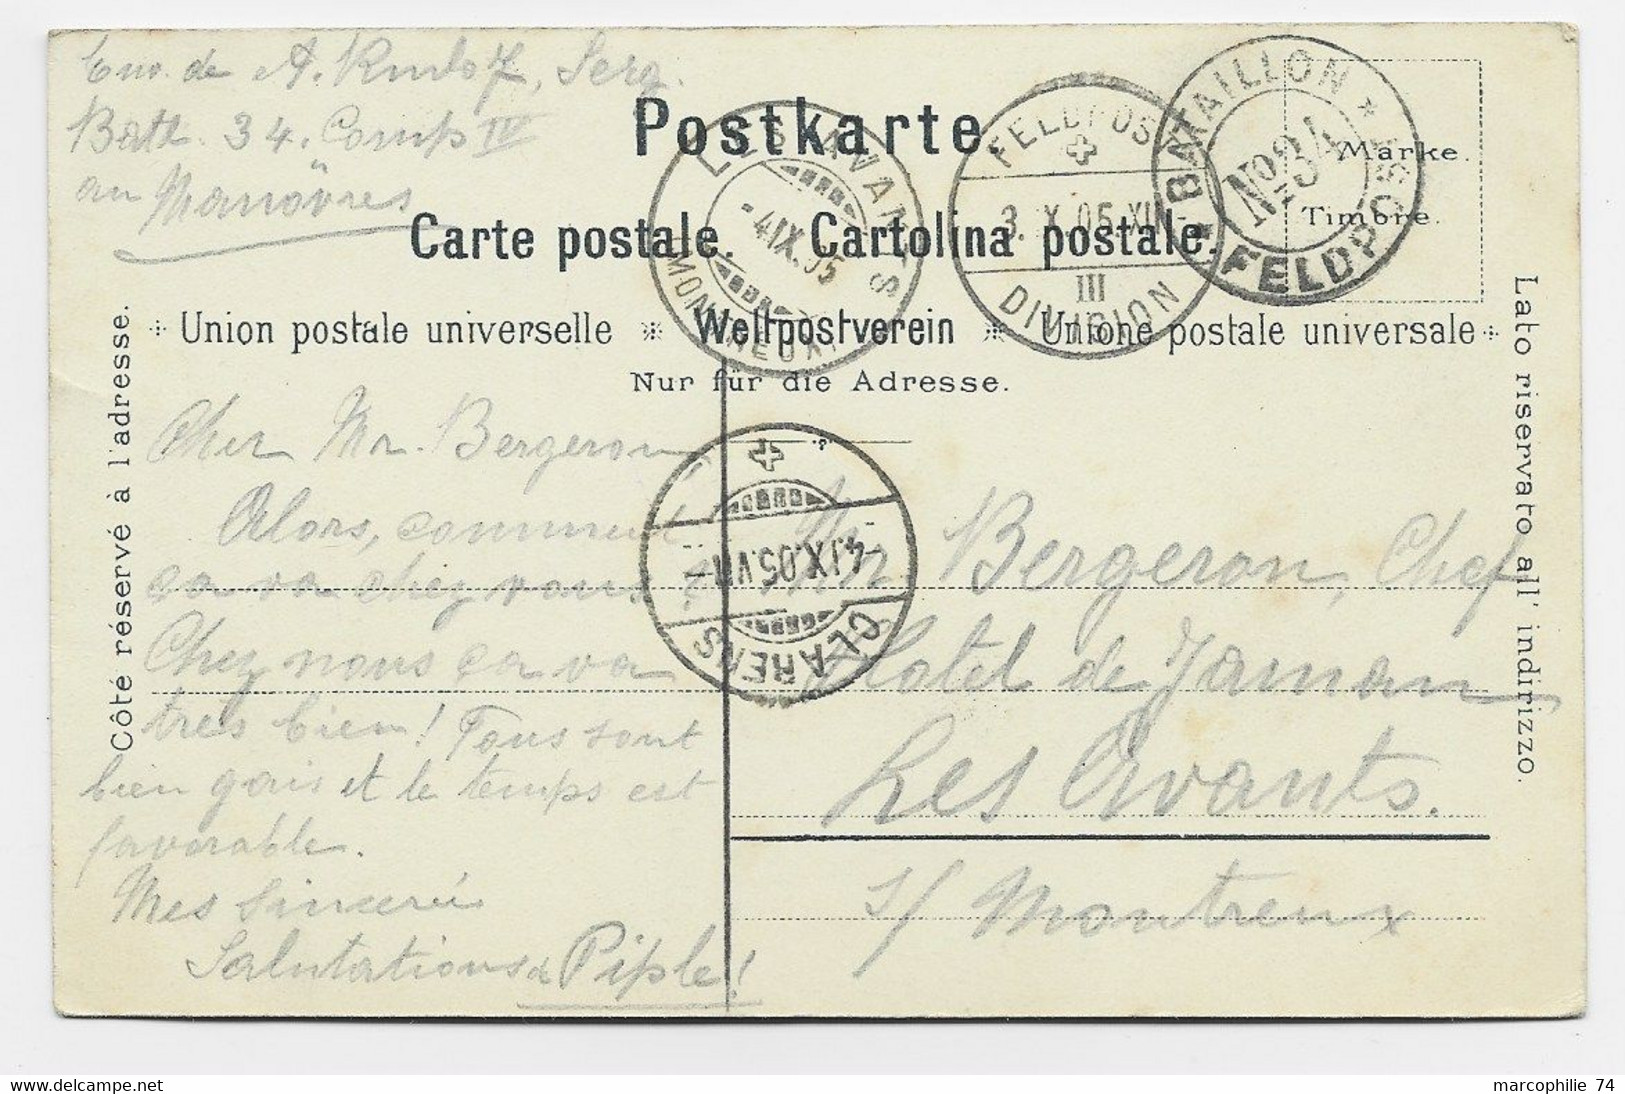 Env. de A. Rudolf, Serg.
Batl. 34. Comp IV
au Manövres
Postkarte
Carte postale. Cartolina postale.
Union postale universelle Weltpostverein Unione postale universale
Nur für die Adresse.
Marke.
Timbre.
Côté réservé à l'adresse.
Lato riservato all' indirizzo.
LES AVANTS
4 IX. 05
(MONTREUX)
FELDPOST
3. IX. 05. XII
III
DIVISION
BATAILLON
No 34
FELDPOST
4. IX. 05. VII
CLARENS
Cher Mr. Bergeron,
Alors, comment
ça va chez vous?
Chez nous ça va
très bien! Tous sont
bien gais et le temps est
favorable.
Mes sincères
Salutations de Piple!
Mr. Bergeron, Chef
Hotel de Jaman
Les Avants.
s/ Montreux
marcophilie 74